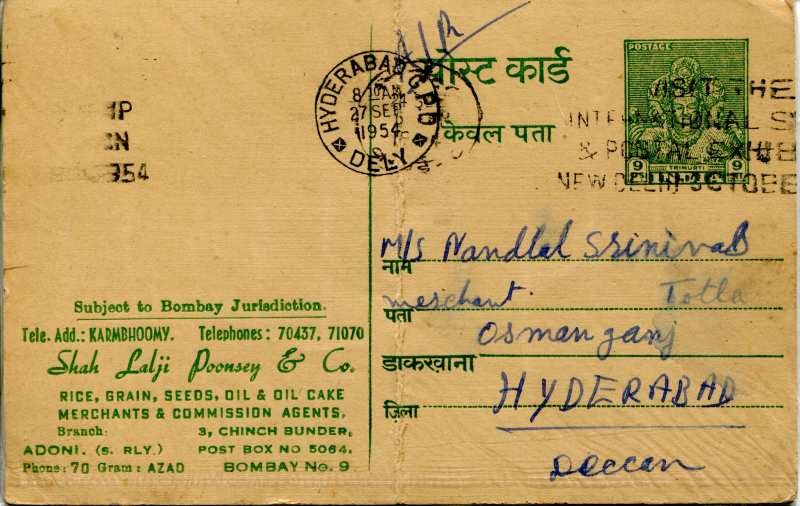 A/R
पोस्ट कार्ड
केवल पता
POSTAGE
9 9
TRIMURTI
HYDERABAD G.P.O
8 10AM
27 SEP
1954
DELY
VISIT THE
INTERNATIONAL S
& POSTAL EXHIB
NEW DELHI OCTOBE
IP
EN
1954
M/S Nandlal Srinivas
नाम
merchant Totla
पता
Osman ganj
डाकख़ाना
HYDERABAD
ज़िला
Deccan
Subject to Bombay Jurisdiction.
Tele. Add.: KARMBHOOMY. Telephones: 70437, 71070
Shah Lalji Poonsey & Co.
RICE, GRAIN, SEEDS, OIL & OIL CAKE
MERCHANTS & COMMISSION AGENTS,
Branch: 3, CHINCH BUNDER,
ADONI. (S. RLY.) POST BOX NO 5064,
Phone: 70 Gram: AZAD BOMBAY No. 9